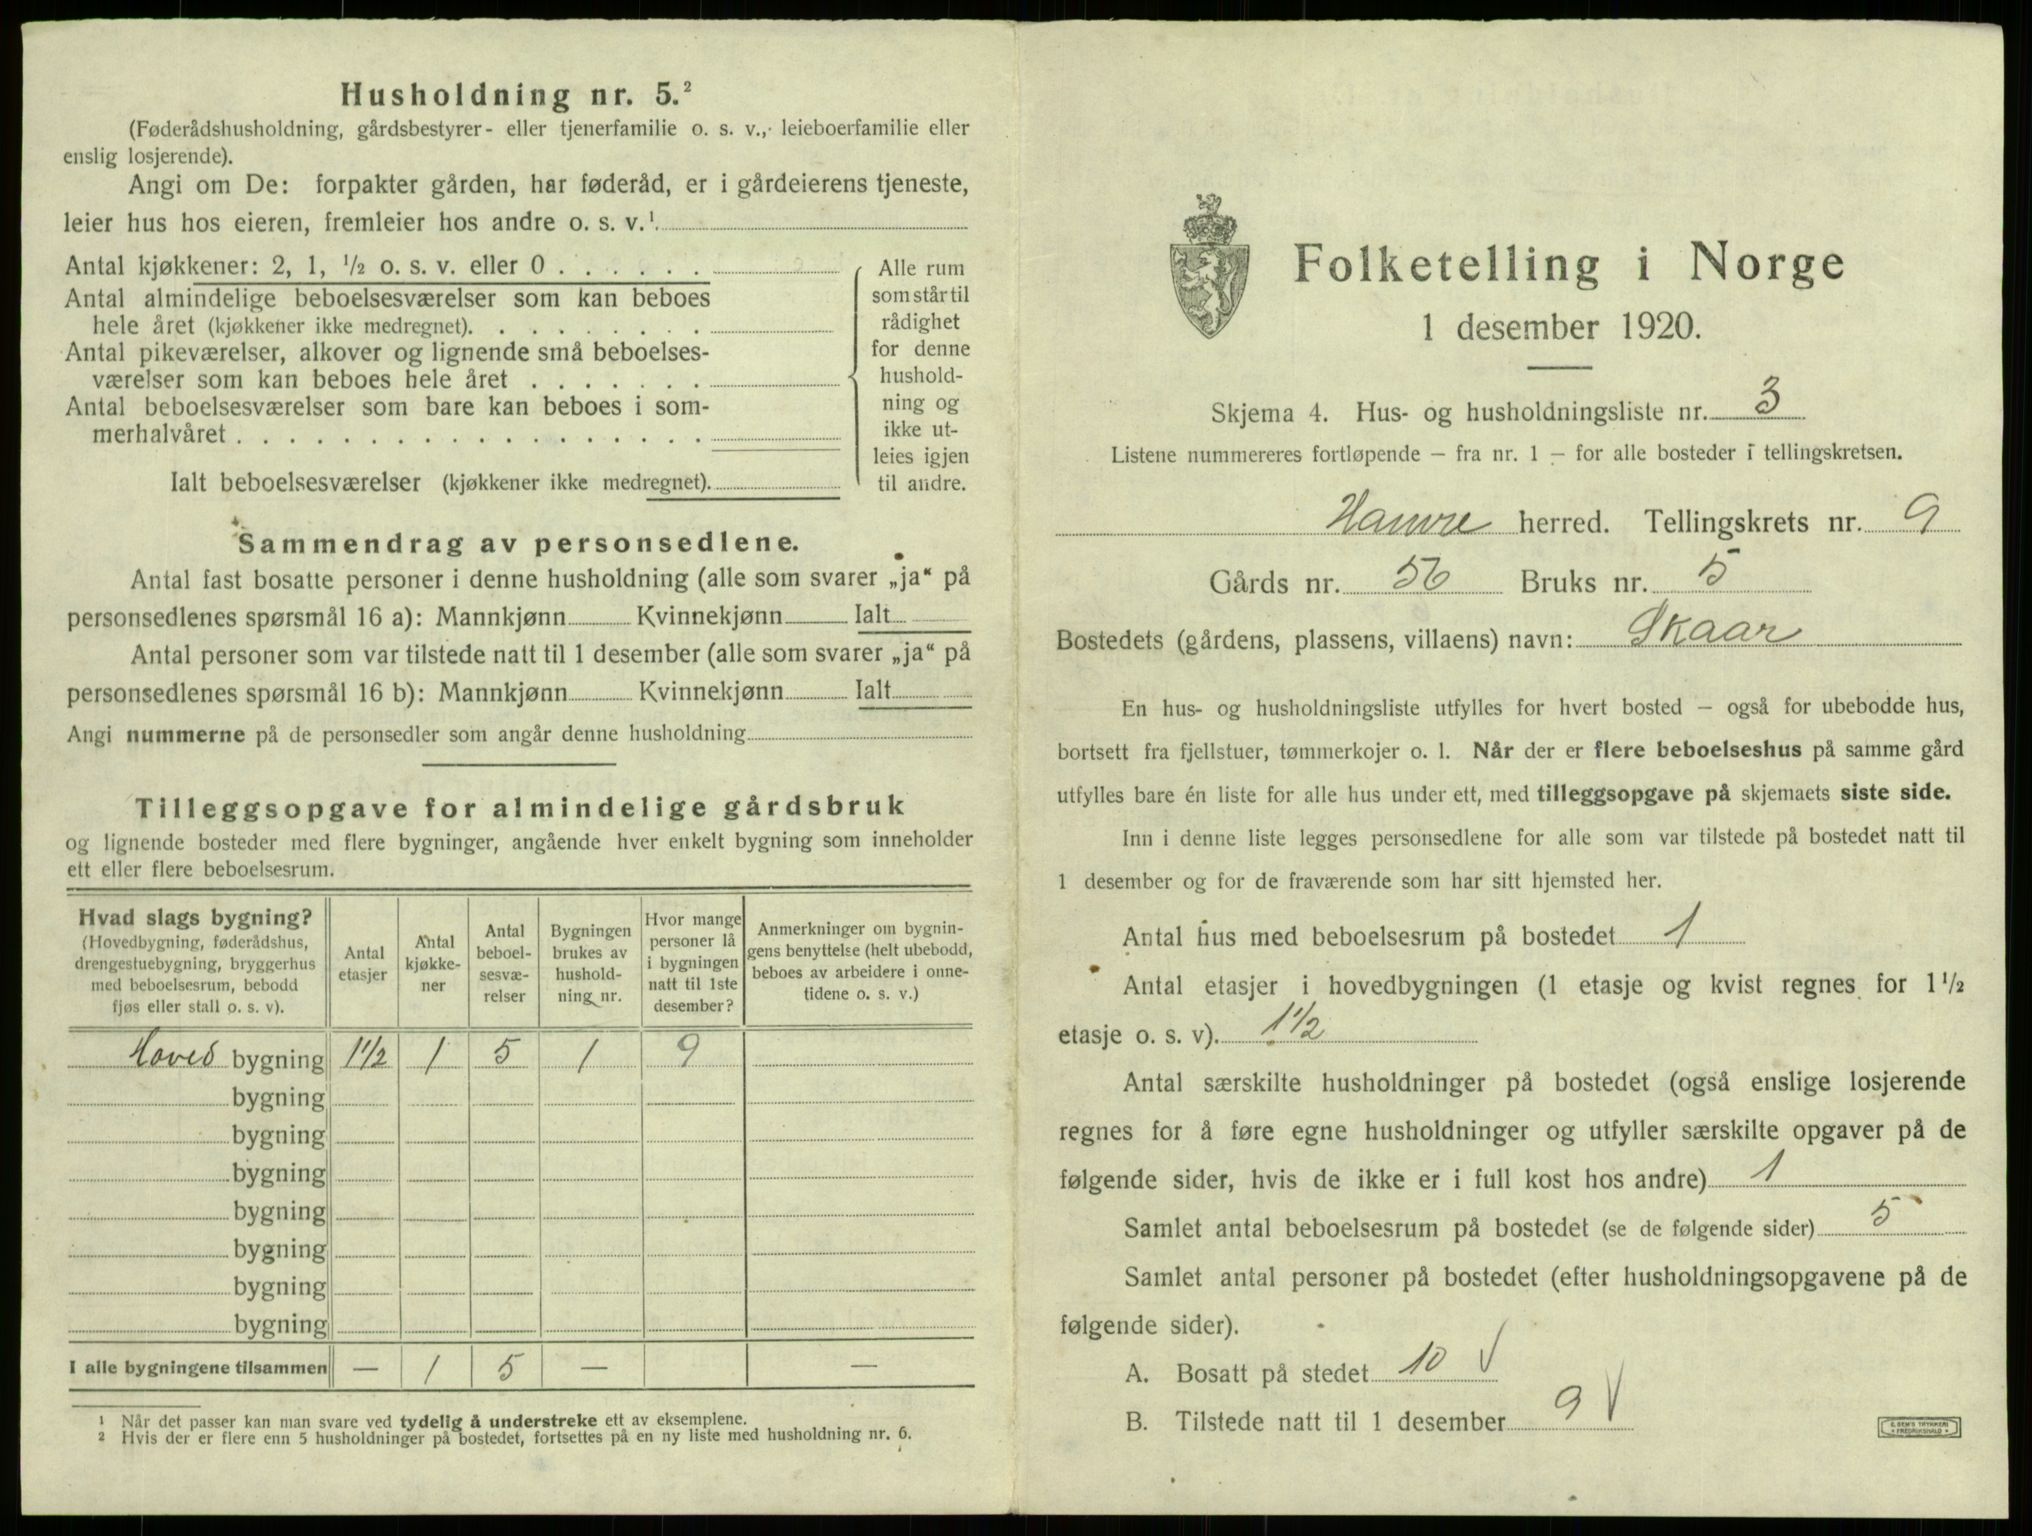 Husholdning nr. 5.²
(Føderådshusholdning, gårdsbestyrer- eller tjenerfamilie o. s. v., leieboerfamilie eller
enslig losjerende).
Angi om De: forpakter gården, har føderåd, er i gårdeierens tjeneste,
leier hus hos eieren, fremleier hos andre o. s. v.¹
Antal kjøkkener: 2, 1, ½ o. s. v. eller 0 . . . . . .
Antal almindelige beboelsesværelser som kan beboes
hele året (kjøkkener ikke medregnet). . . . . . . . .
Antal pikeværelser, alkover og lignende små beboelses-
værelser som kan beboes hele året . . . . . . .
Antal beboelsesværelser som bare kan beboes i som-
merhalvåret . . . . . . . . . . . . . . . . . .
Ialt beboelsesværelser (kjøkkener ikke medregnet).
Alle rum
som står til
rådighet
for denne
hushold-
ning og
ikke ut-
leies igjen
til andre.
Sammendrag av personsedlene.
Antal fast bosatte personer i denne husholdning (alle som svarer „ja“ på
personsedlenes spørsmål 16 a): Mannkjønn Kvinnekjønn Ialt
Antal personer som var tilstede natt til 1 desember (alle som svarer „ja“ på
personsedlenes spørsmål 16 b): Mannkjønn Kvinnekjønn Ialt
Angi nummerne på de personsedler som angår denne husholdning
Tilleggsopgave for almindelige gårdsbruk
og lignende bosteder med flere bygninger, angående hver enkelt bygning som inneholder
ett eller flere beboelsesrum.
Hvad slags bygning?
(Hovedbygning, føderådshus,
drengestuebygning, bryggerhus
med beboelsesrum, bebodd
fjøs eller stall o. s. v).
Antal
etasjer
Antal
kjøkke-
ner
Antal
beboel-
sesvæ-
relser
Bygningen
brukes av
hushold-
ning nr.
Hvor mange
personer lå
i bygningen
natt til 1ste
desember?
Anmerkninger om bygnin-
gens benyttelse (helt ubebodd,
beboes av arbeidere i onne-
tidene o. s. v.)
Hoved bygning 1½ 1 5 1 9
bygning
bygning
bygning
bygning
bygning
bygning
bygning
I alle bygningene tilsammen — 1 5 — —
¹ Når det passer kan man svare ved tydelig å understreke ett av eksemplene.
² Hvis der er flere enn 5 husholdninger på bostedet, fortsettes på en ny liste med husholdning nr. 6.
Folketelling i Norge
1 desember 1920.
Skjema 4. Hus- og husholdningsliste nr. 3
Listene nummereres fortløpende — fra nr. 1 — for alle bosteder i tellingskretsen.
Hamre herred. Tellingskrets nr. 9
Gårds nr. 56 Bruks nr. 5
Bostedets (gårdens, plassens, villaens) navn: Skaar
En hus- og husholdningsliste utfylles for hvert bosted — også for ubebodde hus,
bortsett fra fjellstuer, tømmerkojer o. l. Når der er flere beboelseshus på samme gård
utfylles bare én liste for alle hus under ett, med tilleggsopgave på skjemaets siste side.
Inn i denne liste legges personsedlene for alle som var tilstede på bostedet natt til
1 desember og for de fraværende som har sitt hjemsted her.
Antal hus med beboelsesrum på bostedet 1
Antal etasjer i hovedbygningen (1 etasje og kvist regnes for 1½
etasje o. s. v). 1½
Antal særskilte husholdninger på bostedet (også enslige losjerende
regnes for å føre egne husholdninger og utfyller særskilte opgaver på de
følgende sider, hvis de ikke er i full kost hos andre) 1
Samlet antal beboelsesrum på bostedet (se de følgende sider) 5
Samlet antal personer på bostedet (efter husholdningsopgavene på de
følgende sider).
A. Bosatt på stedet 10 √
B. Tilstede natt til 1 desember 9 √
E. SEM'S TRYKKERI
* FREDRIKSHALD *